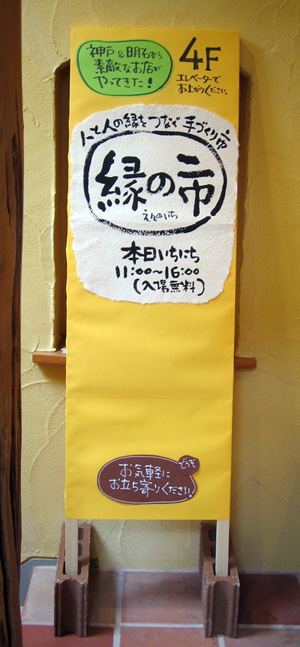 神戸と明石から
素敵なお店が
やってきた!
4F
エレベーターで
お上がりください。
人と人の縁をつなぐ手づくり市
縁の市
えんのいち
本日いちにち
11:00~16:00
(入場無料)
どうぞ
お気軽に
お立ち寄りください!